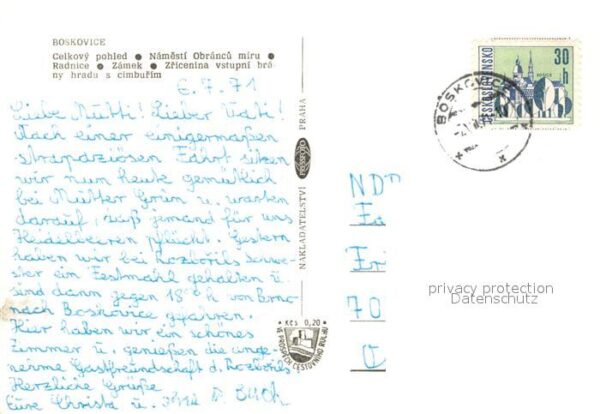 BOSKOVICE
Celkový pohled ● Náměstí Obránců míru ●
Radnice ● Zámek ● Zřícenina vstupní brá-
ny hradu s cimbuřím
6.7.71
Liebe Mutti! Lieber Vati!
Nach einer einigermaßen
strapaziösen Fahrt sitzen
wir nun heute gemütlich
bei Mutter Grün u. warten
darauf, daß jemand für uns
Heidelbeeren pflückt. Gestern
haben wir bei Schwe-
ster ein Festmahl gehalten u.
sind dann gegen 18 h von Brno
nach Boskovice gefahren.
Hier haben wir ein schönes
Zimmer u. genießen die ange-
nehme Gastfreundschaft d.
Herzliche Grüße
Eure Christa u.
NAKLADATELSTVÍ PRESSFOTO PRAHA
Kčs 0,20
VE PROSPĚCH CESTOVNÍHO RUCHU
ČESKOSLOVENSKO
30 h
BOSKOVICE
ND
Fa
70
privacy protection
Datenschutz